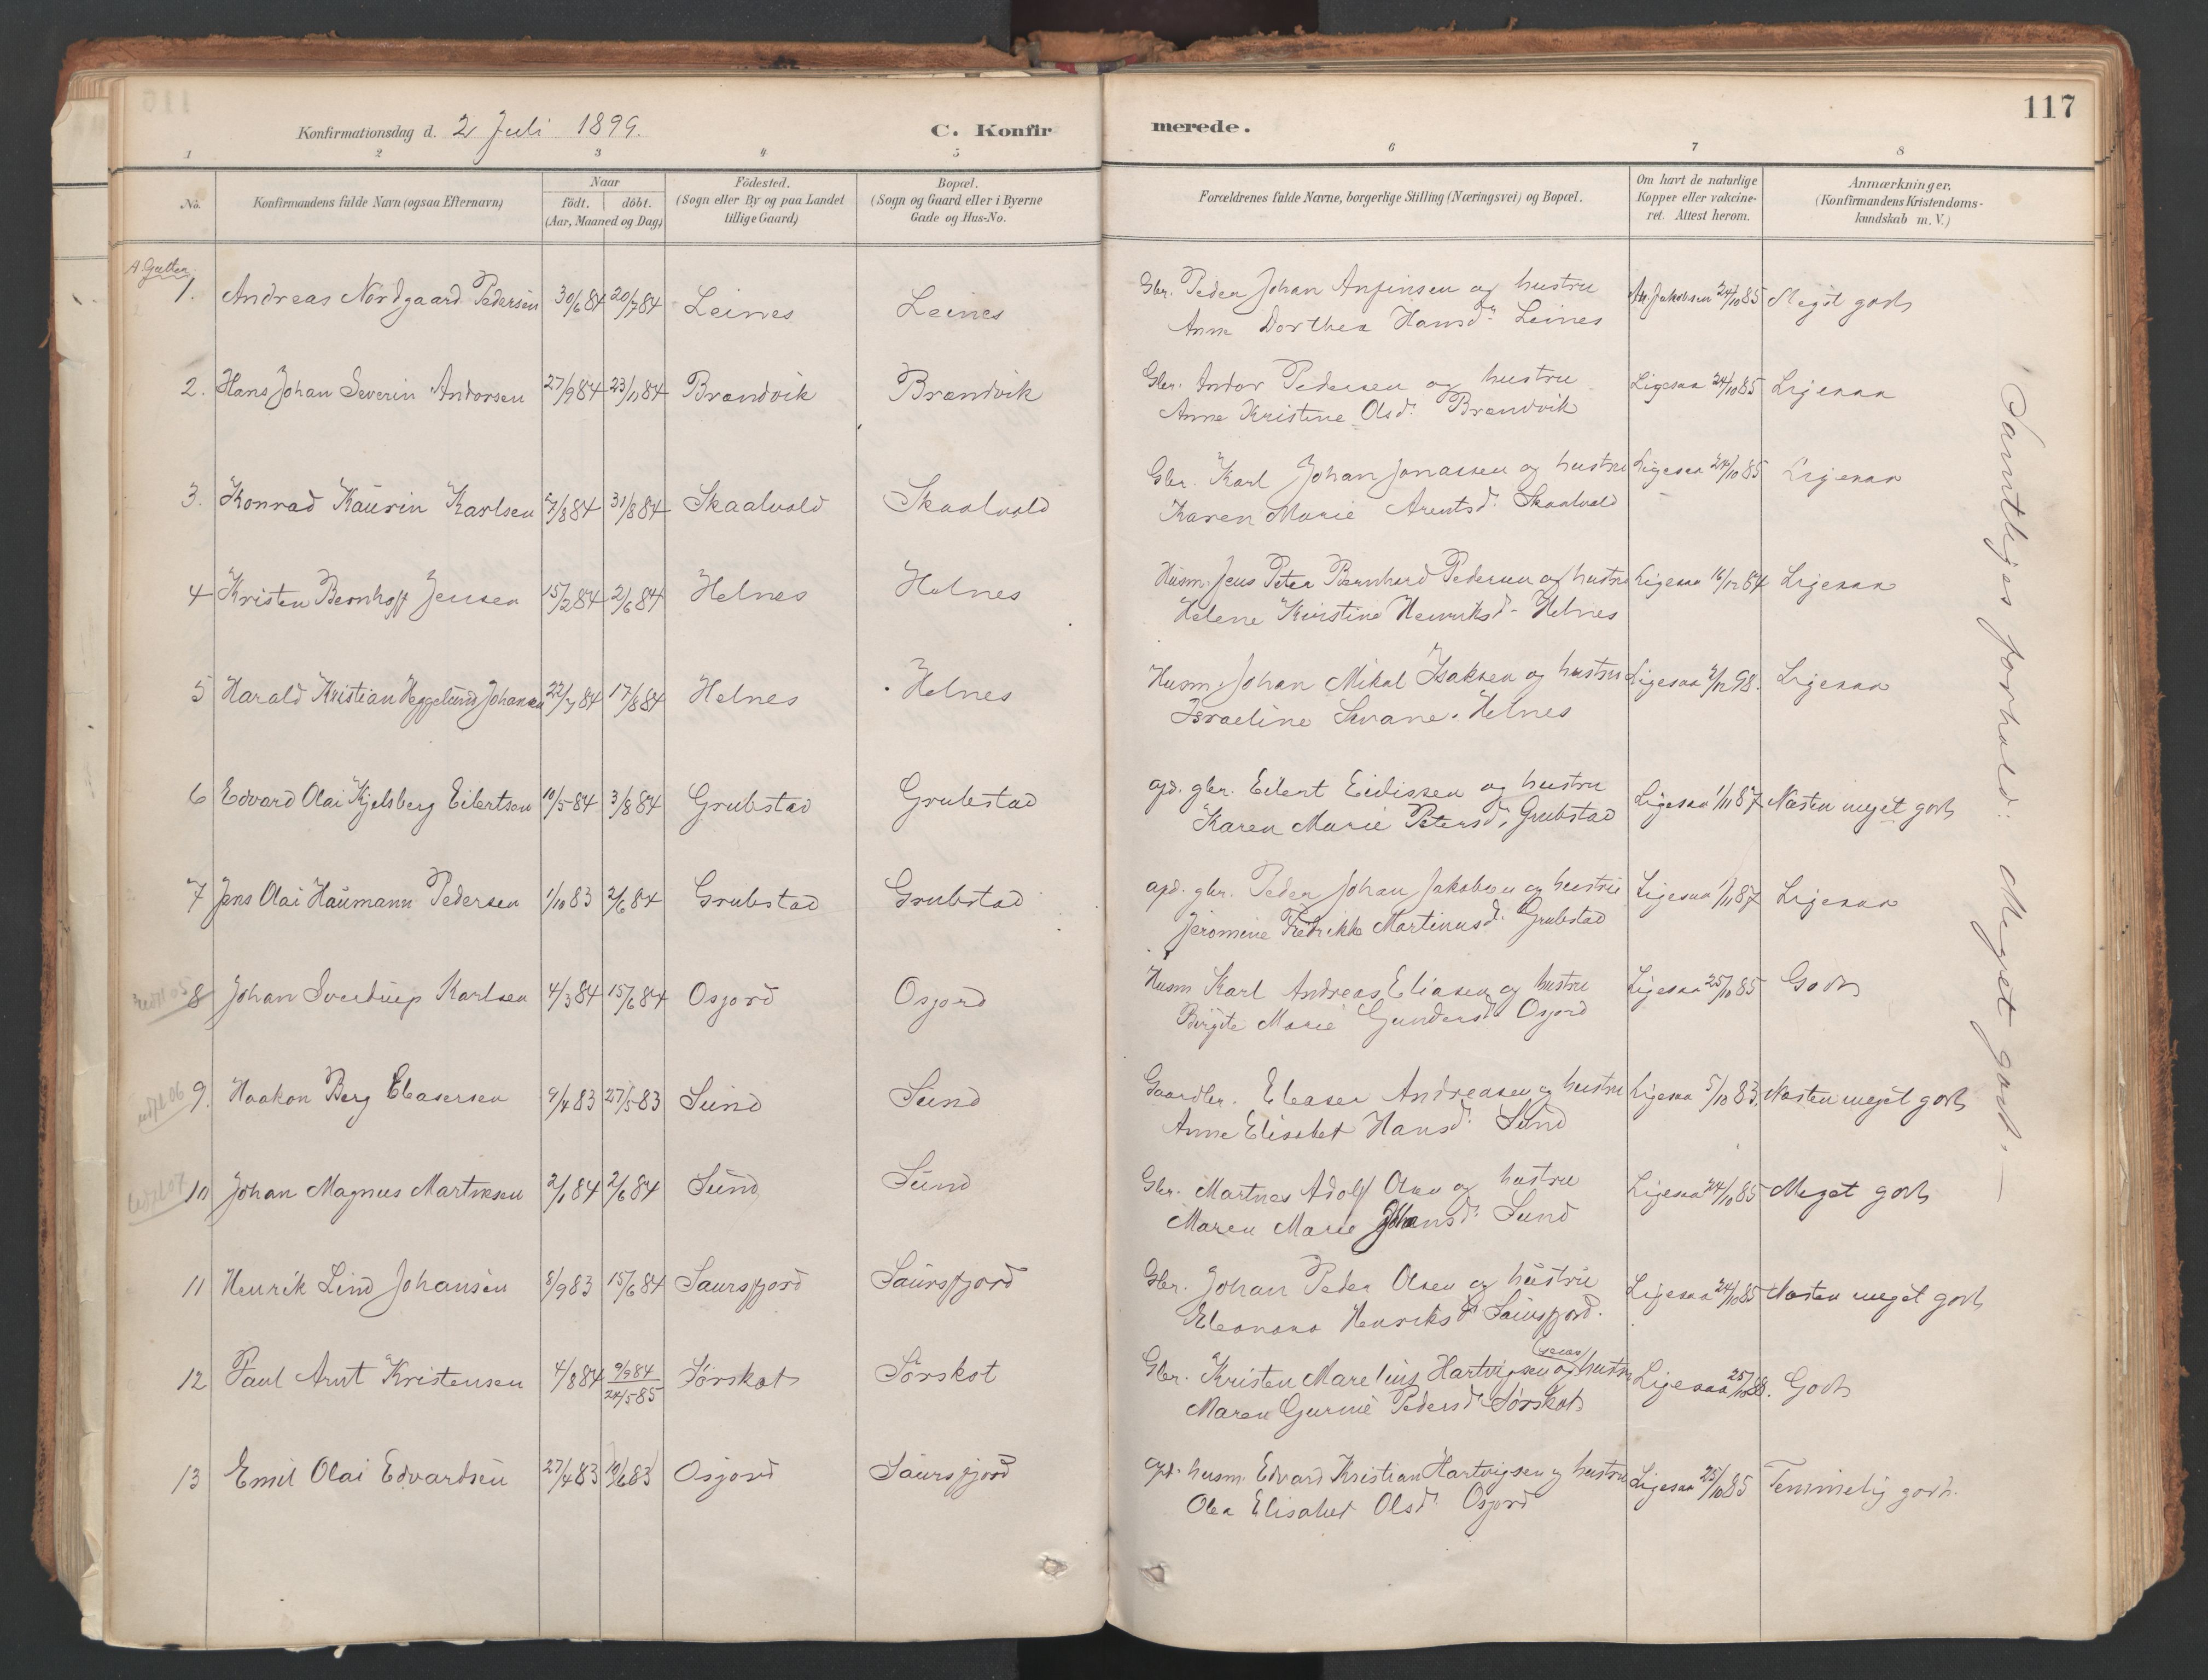 117
Konfirmationsdag d. 2 Juli 1899.
C. Konfirmerede.
1 2 3 4 5 6 7 8
No.
Konfirmandens fulde Navn (ogsaa Efternavn)
Naar
födt. döbt.
(Aar, Maaned og Dag)
Födested.
(Sogn eller By og paa Landet
tillige Gaard)
Bopæl.
(Sogn og Gaard eller i Byerne
Gade og Hus-No.
Forældrenes fulde Navne, borgerlige Stilling (Næringsvei) og Bopæl.
Om havt de naturlige
Kopper eller vakcine-
ret. Attest herom.
Anmærkninger.
(Konfirmandens Kristendoms-
kundskab m. V.)
A. Gutter.
1. Andreas Nordgaard Pedersen 30/6 84 20/7 84 Leines Leines Gbr. Peder Johan Anfinsen og hustru Jakobsen 24/10 85 Meget godt
Anne Dorthea Hansd. Leines
2. Hans Johan Severin Andorsen 27/9 84 23/11 84 Brændvik Brændvik Gbr. Andor Pedersen og hustru Ligesaa 24/10 85 Ligesaa
Anne Kristine Olsd. Brændvik
3. Konrad Kaurin Karlsen 7/8 84 31/8 84 Skaalvold Skaalvold Gbr. Karl Johan Jonassen og hustru Ligesaa 24/10 85 Ligesaa
Karen Marie Arentsd. Skaalvold
4 Kristen Bernhoff Jensen 15/2 84 2/6 84 Helnes Helnes Husm. Jens Peter Bernhard Pedersen og hustru Ligesaa 16/12 84 Ligesaa
Helene Kristine Henriksd. Helnes
5 Harald Kristian Heggelund Johansen 22/7 84 17/8 84 Helnes Helnes Husm. Johan Mikal Isaksen og hustru Ligesaa 2/12 98. Ligesaa
Israeline Svane. Helnes
6 Edvard Olai Kjelsberg Eilertsen 10/5 84 3/8 84 Grubstad Grubstad opd. gbr. Eilert Eidissen og hustru Ligesaa 1/11 87 Næsten meget godt
Karen Marie Petersd. Grubstad
7 Jens Olai Haumann Pedersen 1/10 83 2/6 84 Grubstad Grubstad opd. gbr. Peder Johan Jakobsen og hustru Ligesaa 1/11 87 Ligesaa
Jeromine Fredrikke Martinusd. Grubstad
8 Johan Sverdrup Karlsen 4/3 84 15/6 84 Osjord Osjord Husm Karl Andreas Eliasen og hustru Ligesaa 25/10 85 Godt
Birgite Marie Gundersd. Osjord
9. Haakon Berg Eleasersen 9/4 83 27/5 83 Sund Sund Gaardbr. Eleaser Andreasen og hustru Ligesaa 5/10 83. Næsten meget godt
Anne Elisabet Hansd. Sund
10 Johan Magnus Martnesen 2/1 84 2/6 84 Sund Sund Gbr. Martnes Adolf Olsen og hustru Ligesaa 24/10 85 Meget godt
Maren Marie Johansd. Sund
11 Henrik Lind Johansen 8/9 83 15/6 84 Saursfjord Saursfjord Gbr. Johan Peder Olsen og hustru Ligesaa 24/10 85 Næsten meget godt
Eleonora Henriksd. Saursfjord.
12 Paul Arnt Kristensen 4/8 84 9/9 84 24/5 85 Sörskot Sörskot Gbr. Kristen Marelius Hartvigsen og hustru Ligesaa 25/10 88. Godt
Maren Gurine Pedersd. Sörskot
13 Emil Olai Edvardsen 27/4 83 10/6 83 Osjord Saursfjord opd. husm. Edvard Kristian Hartvigsen og hustru Ligesaa 25/10 85 Temmelig godt.
Olea Elisabet Olsd. Osjord
Samtliges forhold: Meget godt. —